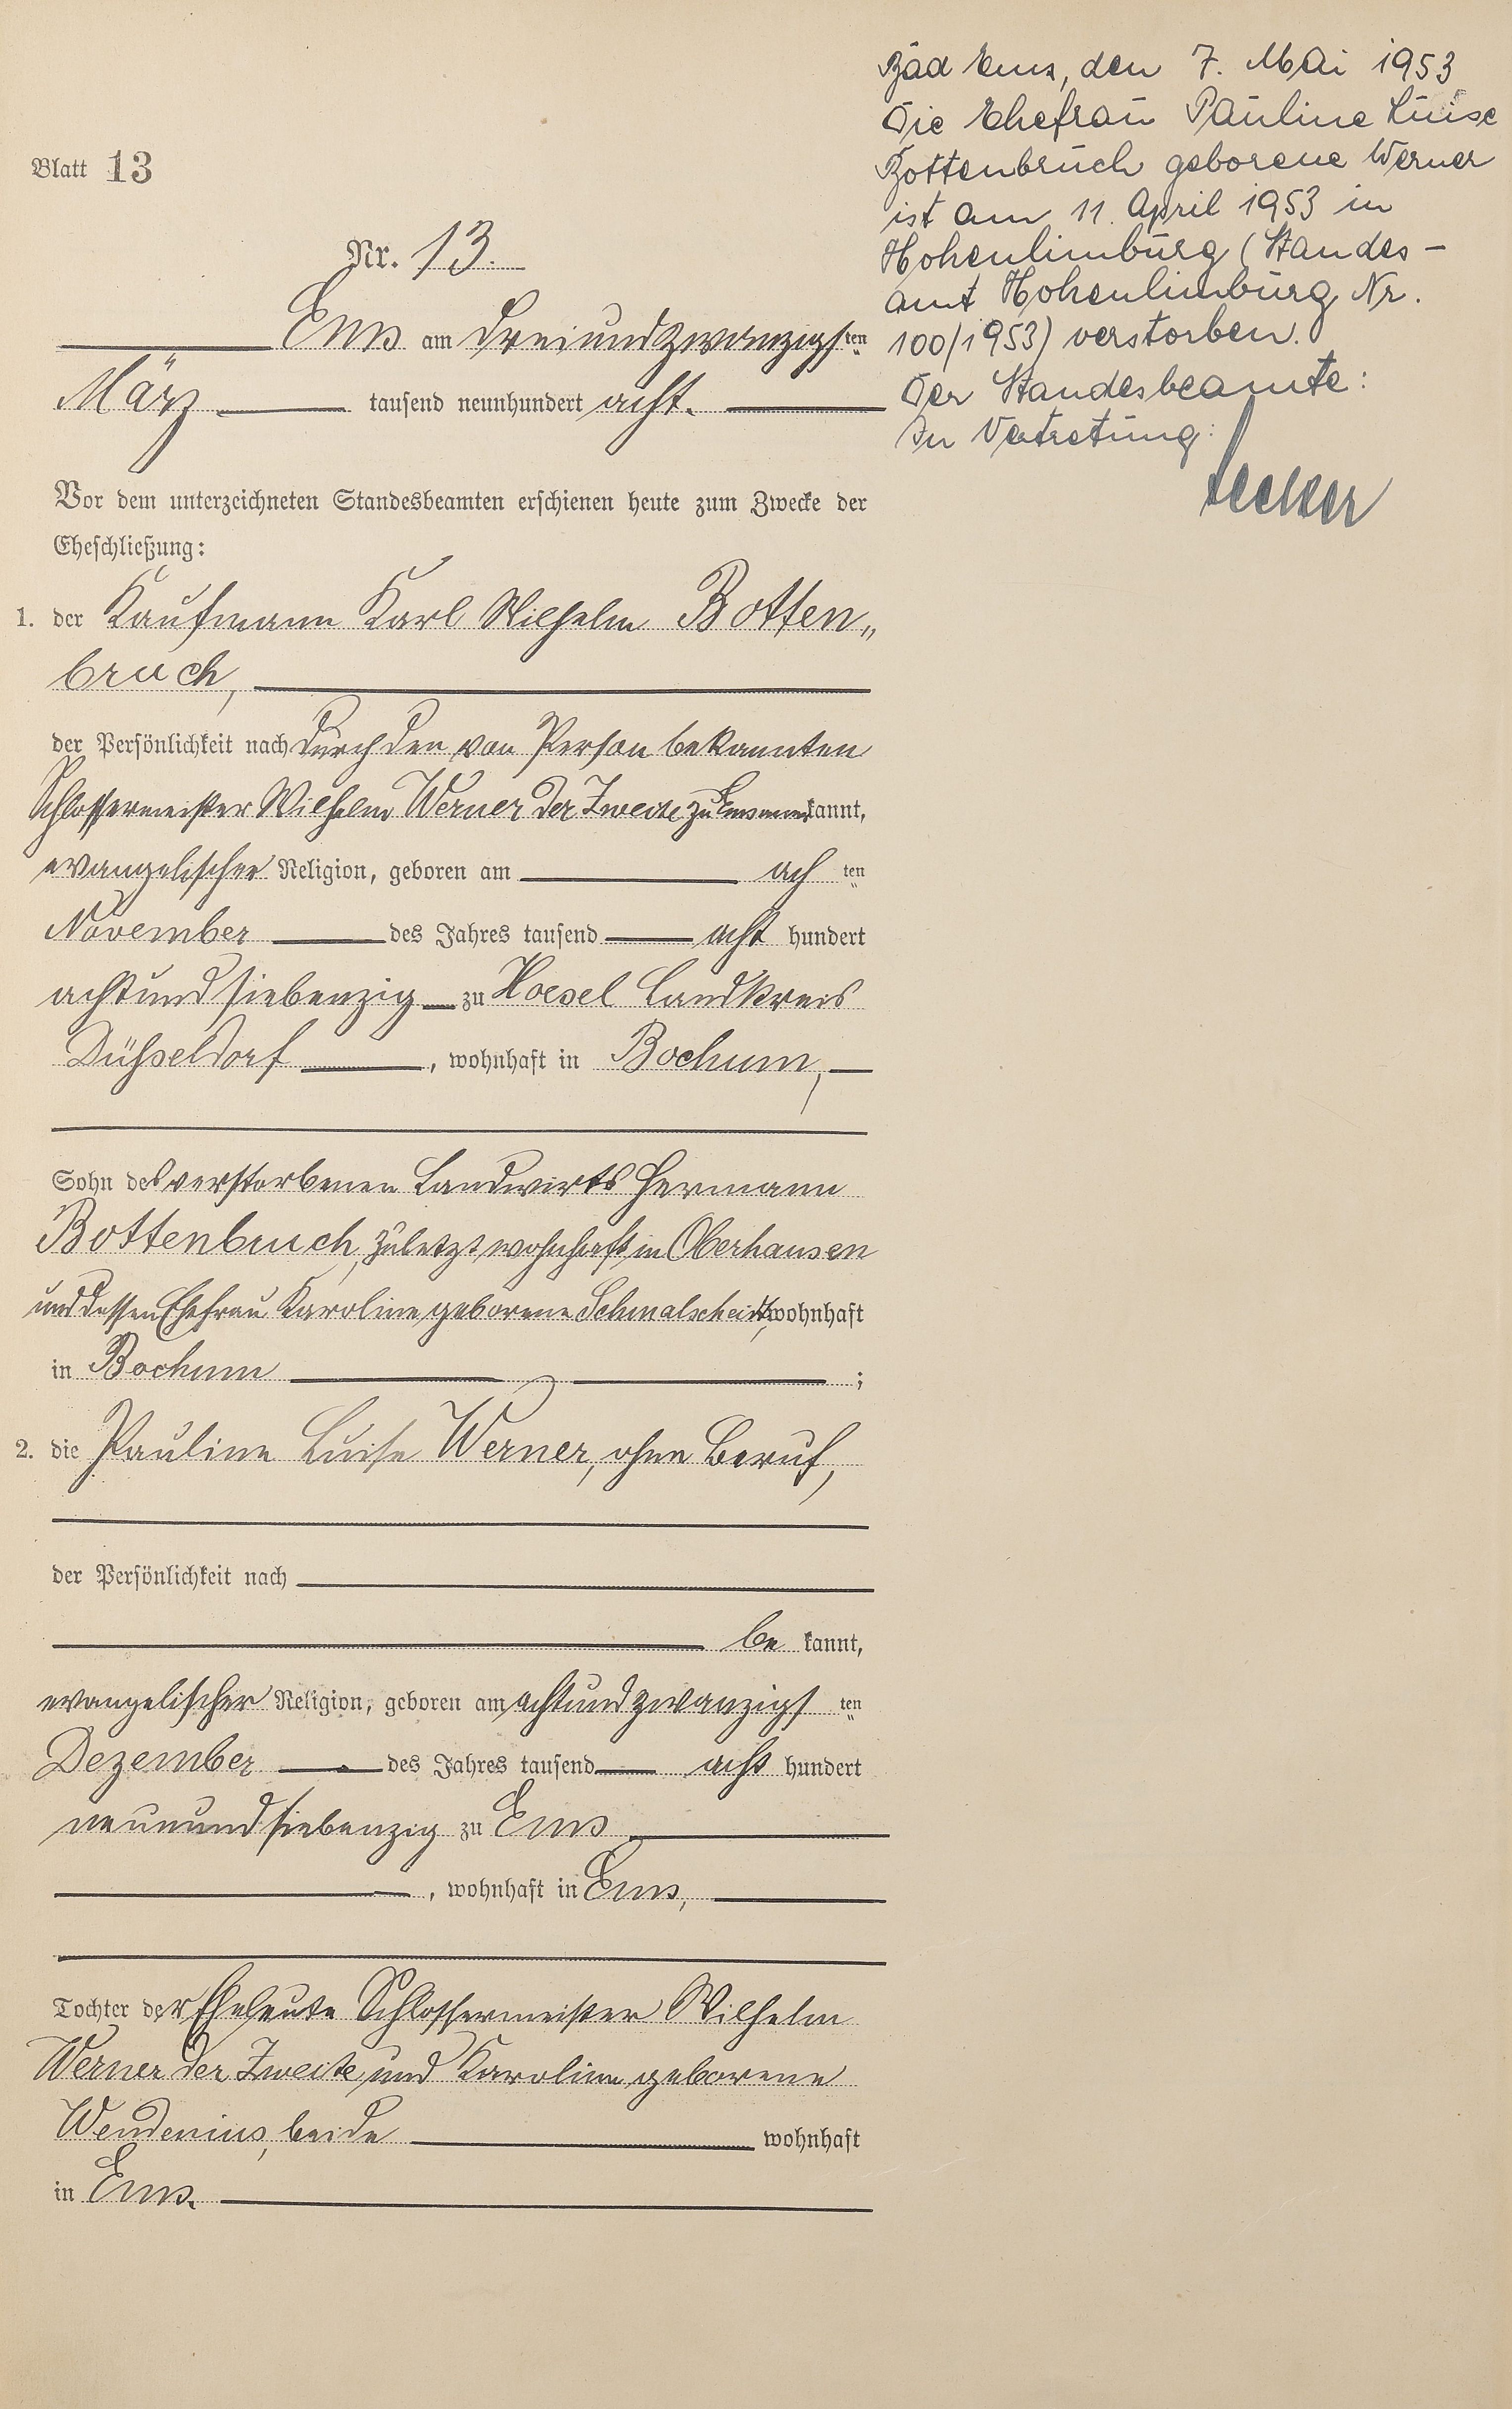 Blatt 13
Nr. 13.
Ems am dreiundzwanzigsten
März tausend neunhundert acht.
Vor dem unterzeichneten Standesbeamten erschienen heute zum Zwecke der
Eheschließung:
1. der Kaufmann Karl Wilhelm Botten„
bruch,
der Persönlichkeit nach durch den von Person bekannten
Schlossermeister Wilhelm Werner der Zweite zu Ems anerkannt,
evangelischer Religion, geboren am achten
November des Jahres tausend acht hundert
achtundsiebenzig zu Hoesel Landkreis
Düsseldorf, wohnhaft in Bochum,
Sohn des verstorbenen Landwirts Hermann
Bottenbruch, zuletzt wohnhaft in Oberhausen
und dessen Ehefrau Karoline geborene Schmalscheidt, wohnhaft
in Bochum ;
2. die Pauline Luise Werner, ohne Beruf,
der Persönlichkeit nach
be kannt,
evangelischer Religion, geboren am achtundzwanzigsten
Dezember des Jahres tausend acht hundert
neunundsiebenzig zu Ems
, wohnhaft in Ems,
Tochter der Eheleute Schlossermeister Wilhelm
Werner der Zweite und Karoline geborene
Wendenius, beide wohnhaft
in Ems.
Bad Ems, den 7. Mai 1953
Die Ehefrau Pauline Luise
Bottenbruch geborene Werner
ist am 11. April 1953 in
Hohenlimburg (Standes-
amt Hohenlimburg Nr.
100/1953) verstorben.
Der Standesbeamte:
In Vertretung: